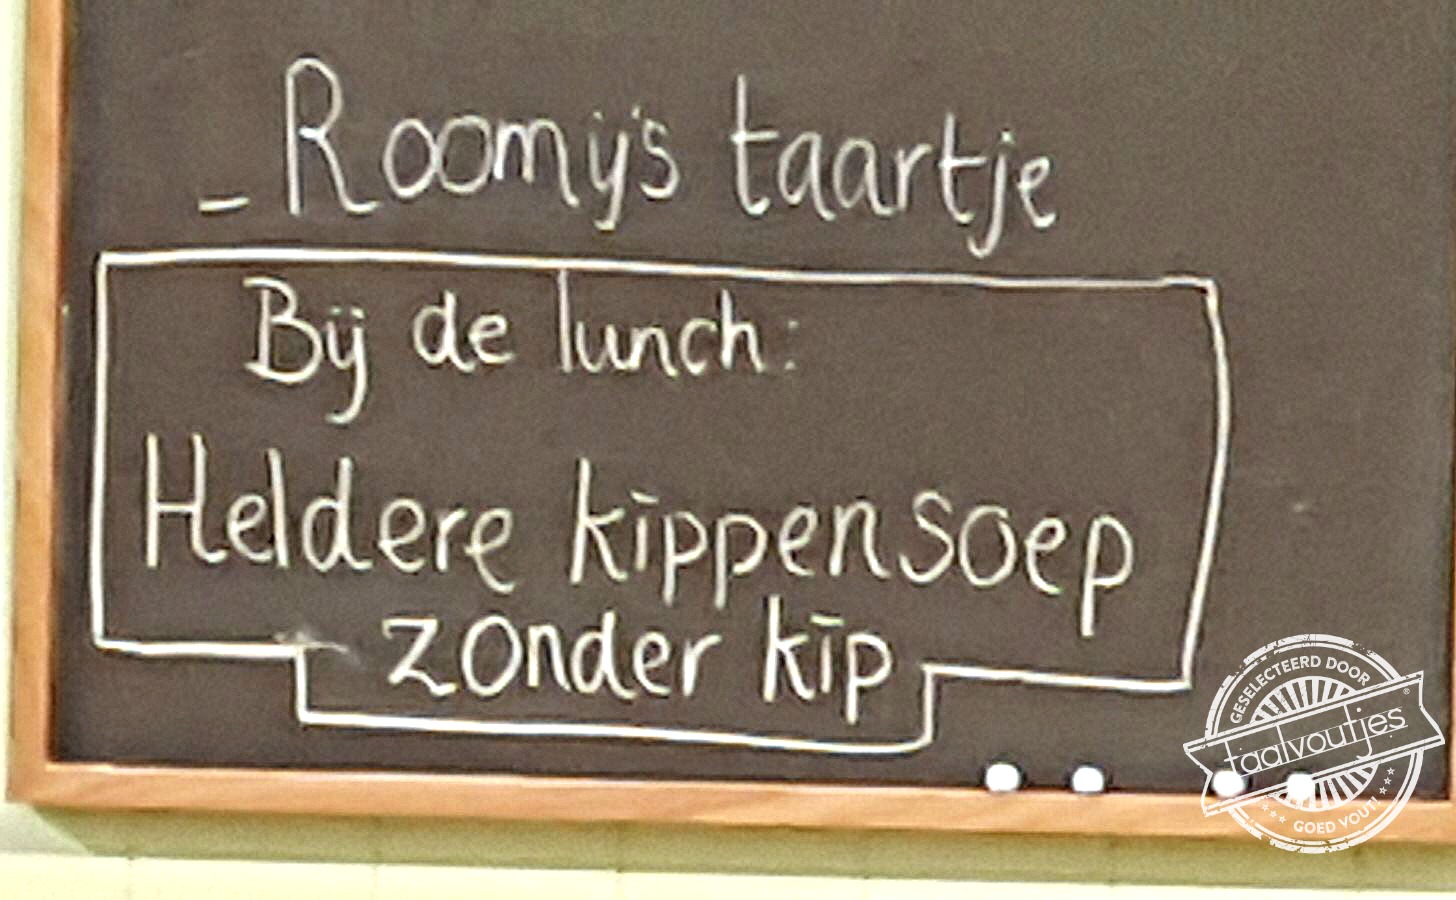 - Roomy's taartje
Bij de lunch:
Heldere kippensoep
zonder kip
GESELECTEERD DOOR
taalvoutjes®
GOED VOUT!